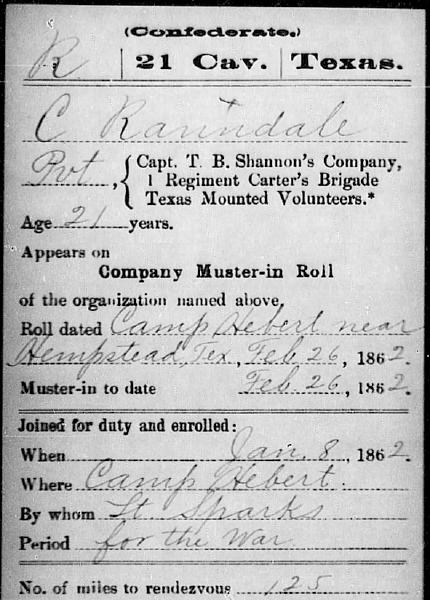 (Confederate.)
R | 21 Cav. | Texas.
C Ranndale
Pvt, { Capt. T. B. Shannon's Company,
1 Regiment Carter's Brigade
Texas Mounted Volunteers.*
Age 21 years.
Appears on
Company Muster-in Roll
of the organization named above.
Roll dated Camp Hebert near
Hempstead, Tex, Feb 26, 1862.
Muster-in to date Feb 26, 1862.
Joined for duty and enrolled:
When Jan. 8, 1862.
Where Camp Hebert.
By whom Lt Sparks
Period for the War
No. of miles to rendezvous 125